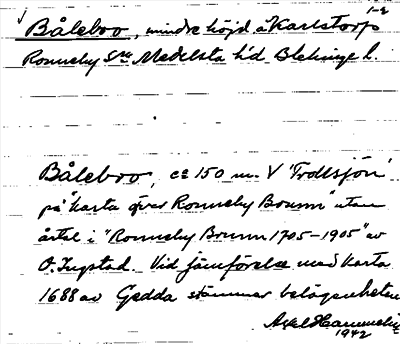 1-2
Båleboo, mindre höjd å Karlstorp
Ronneby Sn Medelsta hd Blekinge l.
Båleboo, ca 150 m. V 'Trollsjön'
på "karta över Ronneby Brunn" utan
årtal i "Ronneby Brunn 1705-1905" av
O. Ingstad. Vid jämförelse med karta
1688 av Gedda stämmer belägenheten
Axel
1942